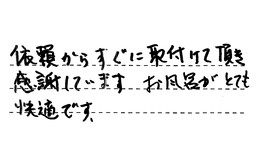 依頼からすぐに取付けて頂き
感謝しています お風呂がとても
快適です。